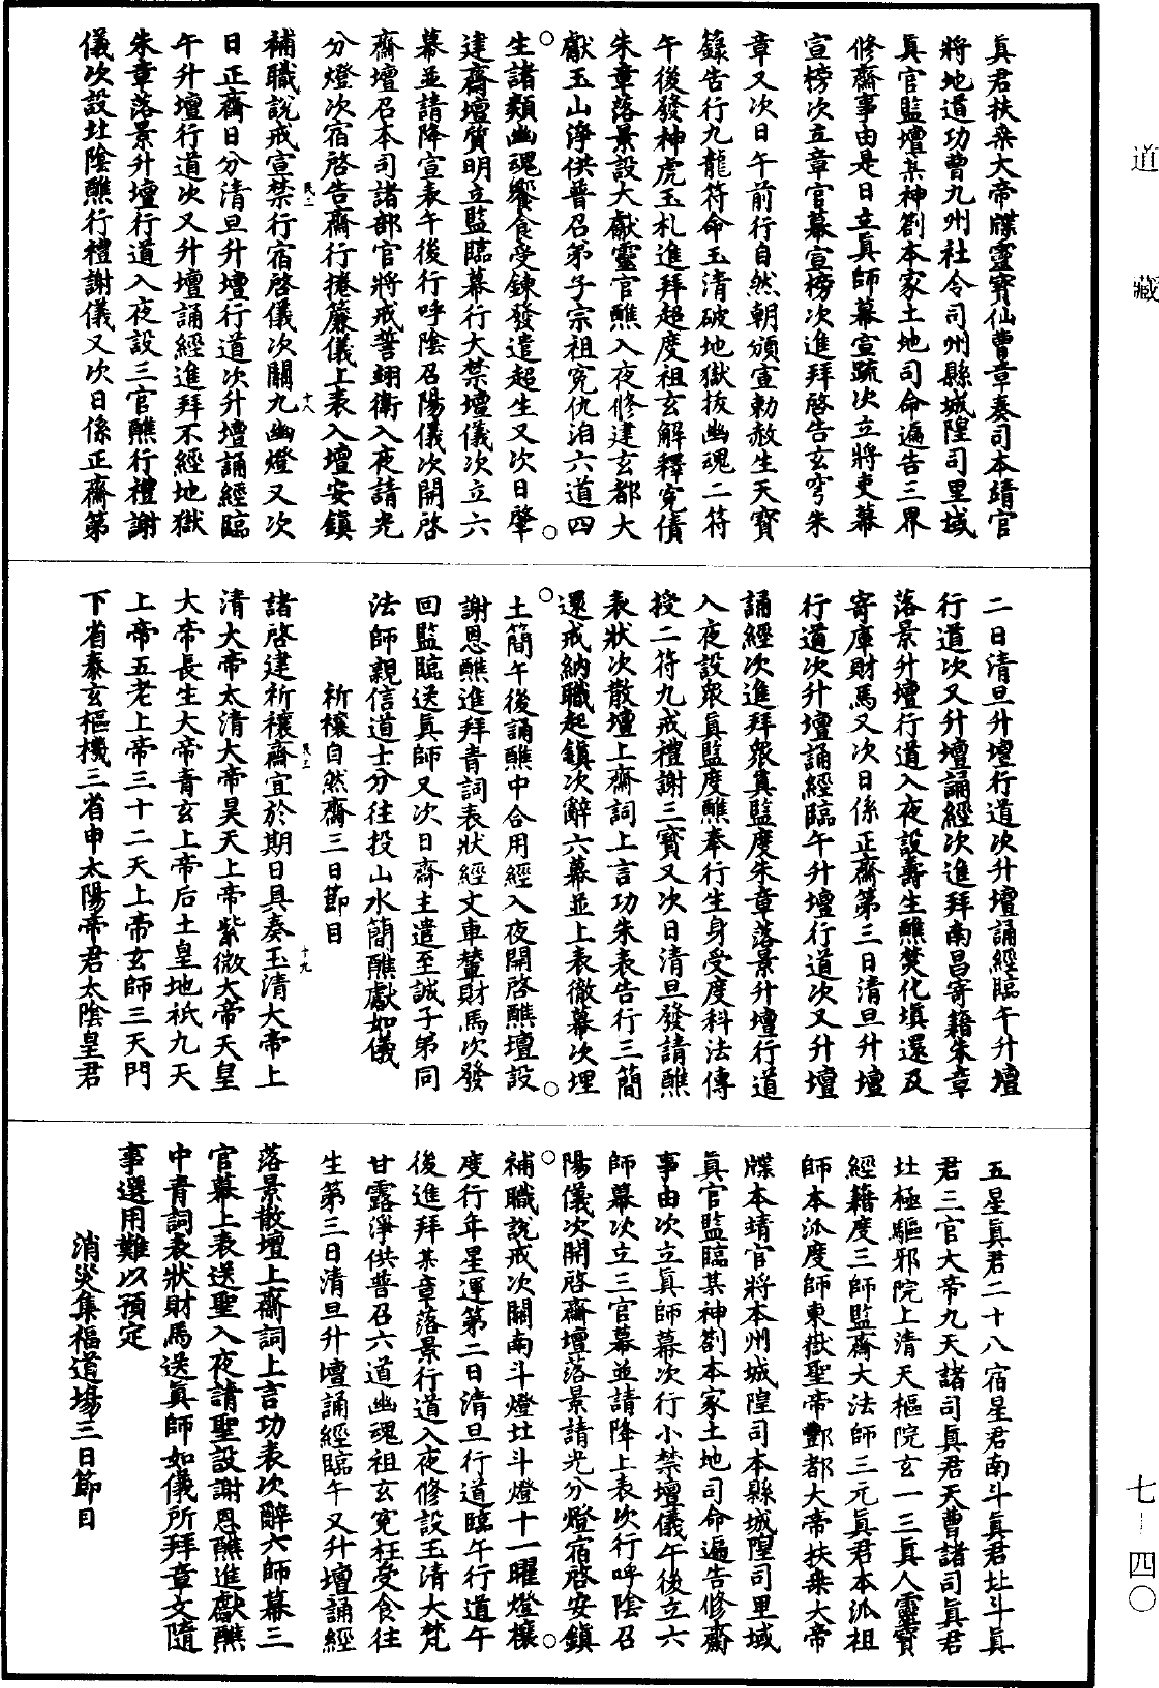 道藏
真君扶桑大帝牒靈寶仙曹章奏司本靖官
將地道功曹九州社令司州縣城隍司里域
真官監壇某神劄本家土地司命遍告三界
修齋事由是日立真師幕宣疏次立將吏幕
宣榜次立章官幕宣榜次進拜啓告玄穹朱
章又次日午前行自然朝頒宣勅赦生天寶
籙告行九龍符命玉清破地獄拔幽魂二符
午後發神虎玉札進拜超度祖玄解釋冤債
朱章落景設大獻靈官醮入夜修建玄都大
獻玉山淨供普召弟子宗祖冤仇洎六道四
生諸類幽魂饗食受鍊發遣超生又次日肇
建齋壇質明立監臨幕行大禁壇儀次立六
幕並請降宣表午後行呼陰召陽儀次開啓
齋壇召本司諸部官將戒誓翊衛入夜請光
分燈次宿啓告齋行捲簾儀上表入壇安鎮
補職說戒宣禁行宿啓儀次關九幽燈又次
日正齋日分清旦升壇行道次升壇誦經臨
午升壇行道次又升壇誦經進拜不經地獄
朱章落景升壇行道入夜設三官醮行禮謝
儀次設北陰醮行禮謝儀又次日係正齋第
二日清旦升壇行道次升壇誦經臨午升壇
行道次又升壇誦經次進拜南昌寄籍朱章
落景升壇行道入夜設壽生醮焚化填還及
寄庫財馬又次日係正齋第三日清旦升壇
行道次升壇誦經臨午升壇行道次又升壇
誦經次進拜眾真監度朱章落景升壇行道
入夜設眾真監度醮奉行生身受度科法傳
授二符九戒禮謝三寶又次日清旦發請醮
表狀次散壇上齋詞上言功朱表告行三簡
還戒納職起鎮次辭六幕並上表徹幕次埋
土簡午後誦醮中合用經入夜開啓醮壇設
謝恩醮進拜青詞表狀經文車輦財馬次發
回監臨送真師又次日齋主遣至誠子弟同
法師親信道士分往投山水簡醮獻如儀
祈禳自然齋三日節目
諸啓建祈禳齋宜於期日具奏玉清大帝上
清大帝太清大帝昊天上帝紫微大帝天皇
大帝長生大帝青玄上帝后土皇地祇九天
上帝五老上帝三十二天上帝玄師三天門
下省泰玄樞機三省申太陽帝君太陰皇君
五星真君二十八宿星君南斗真君北斗真
君三官大帝九天諸司真君天曹諸司真君
北極驅邪院上清天樞院玄一三真人靈寶
經籍度三師監齋大法師三元真君本派祖
師本派度師東嶽聖帝酆都大帝扶桑大帝
牒本靖官將本州城隍司本縣城隍司里域
真官監臨某神劄本家土地司命遍告修齋
事由次立真師幕次行小禁壇儀午後立六
師幕次立三官幕並請降上表次行呼陰召
陽儀次開啓齋壇落景請光分燈宿啓安鎮
補職說戒次關南斗燈北斗燈十一曜燈禳
度行年星運第二日清旦行道臨午行道午
後進拜某章落景行道入夜修設玉清大梵
甘露淨供普召六道幽魂祖玄冤枉受食往
生第三日清旦升壇誦經臨午又升壇誦經
落景散壇上齋詞上言功表次辭六師幕三
官幕上表送聖入夜請聖設謝恩醮進獻醮
中青詞表狀財馬送真師如儀所拜章文隨
事選用難以預定
消災集福道場三日節目
七—四〇